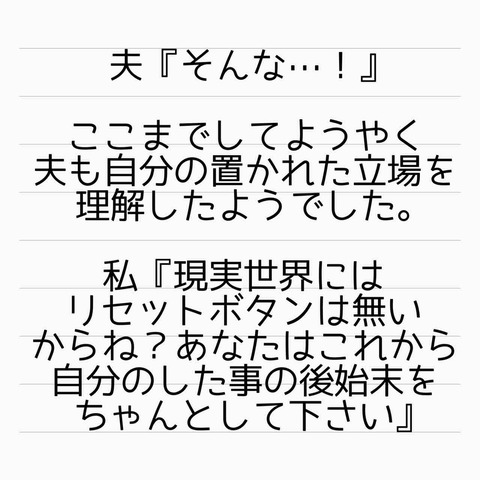 夫『そんな…！』
ここまでしてようやく
夫も自分の置かれた立場を
理解したようでした。
私『現実世界には
リセットボタンは無い
からね？あなたはこれから
自分のした事の後始末を
ちゃんとして下さい』